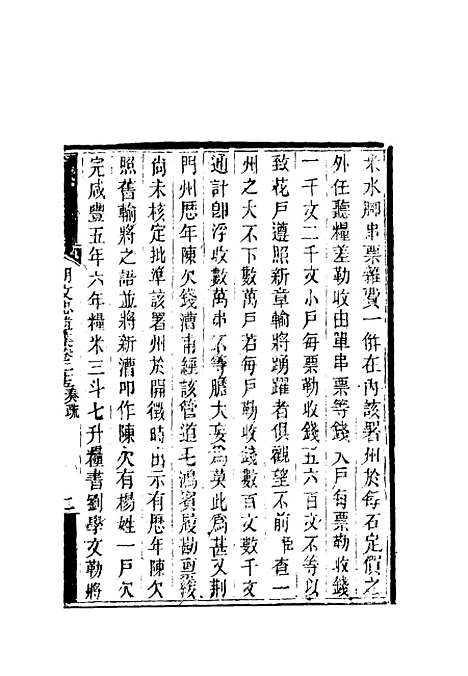 米水腳串票雜費一併在內該署州於每石定價之
外任聽糧差勒收由單串票等錢大戶每票勒收錢
一千文二千文小戶每票勒收錢五六百文不等以
致花戶遵照新章輸將踴躍者俱觀望不前臣查一
州之大不下數萬戶若每戶勒收錢數百文數千文
通計卽浮收數萬串不等膽大妄為莫此為甚又荊
門州歷年陳欠錢漕甫經該管道毛鴻賓履勘稟緩
尙未核定批準該署州於開徵時出示有歷年陳欠
照舊輸將之語並將新漕叩作陳欠有楊姓一戶欠
完咸豐五年六年糧米三斗七升糧書劉學文勒將
胡文忠公遺集卷二十 奏疏